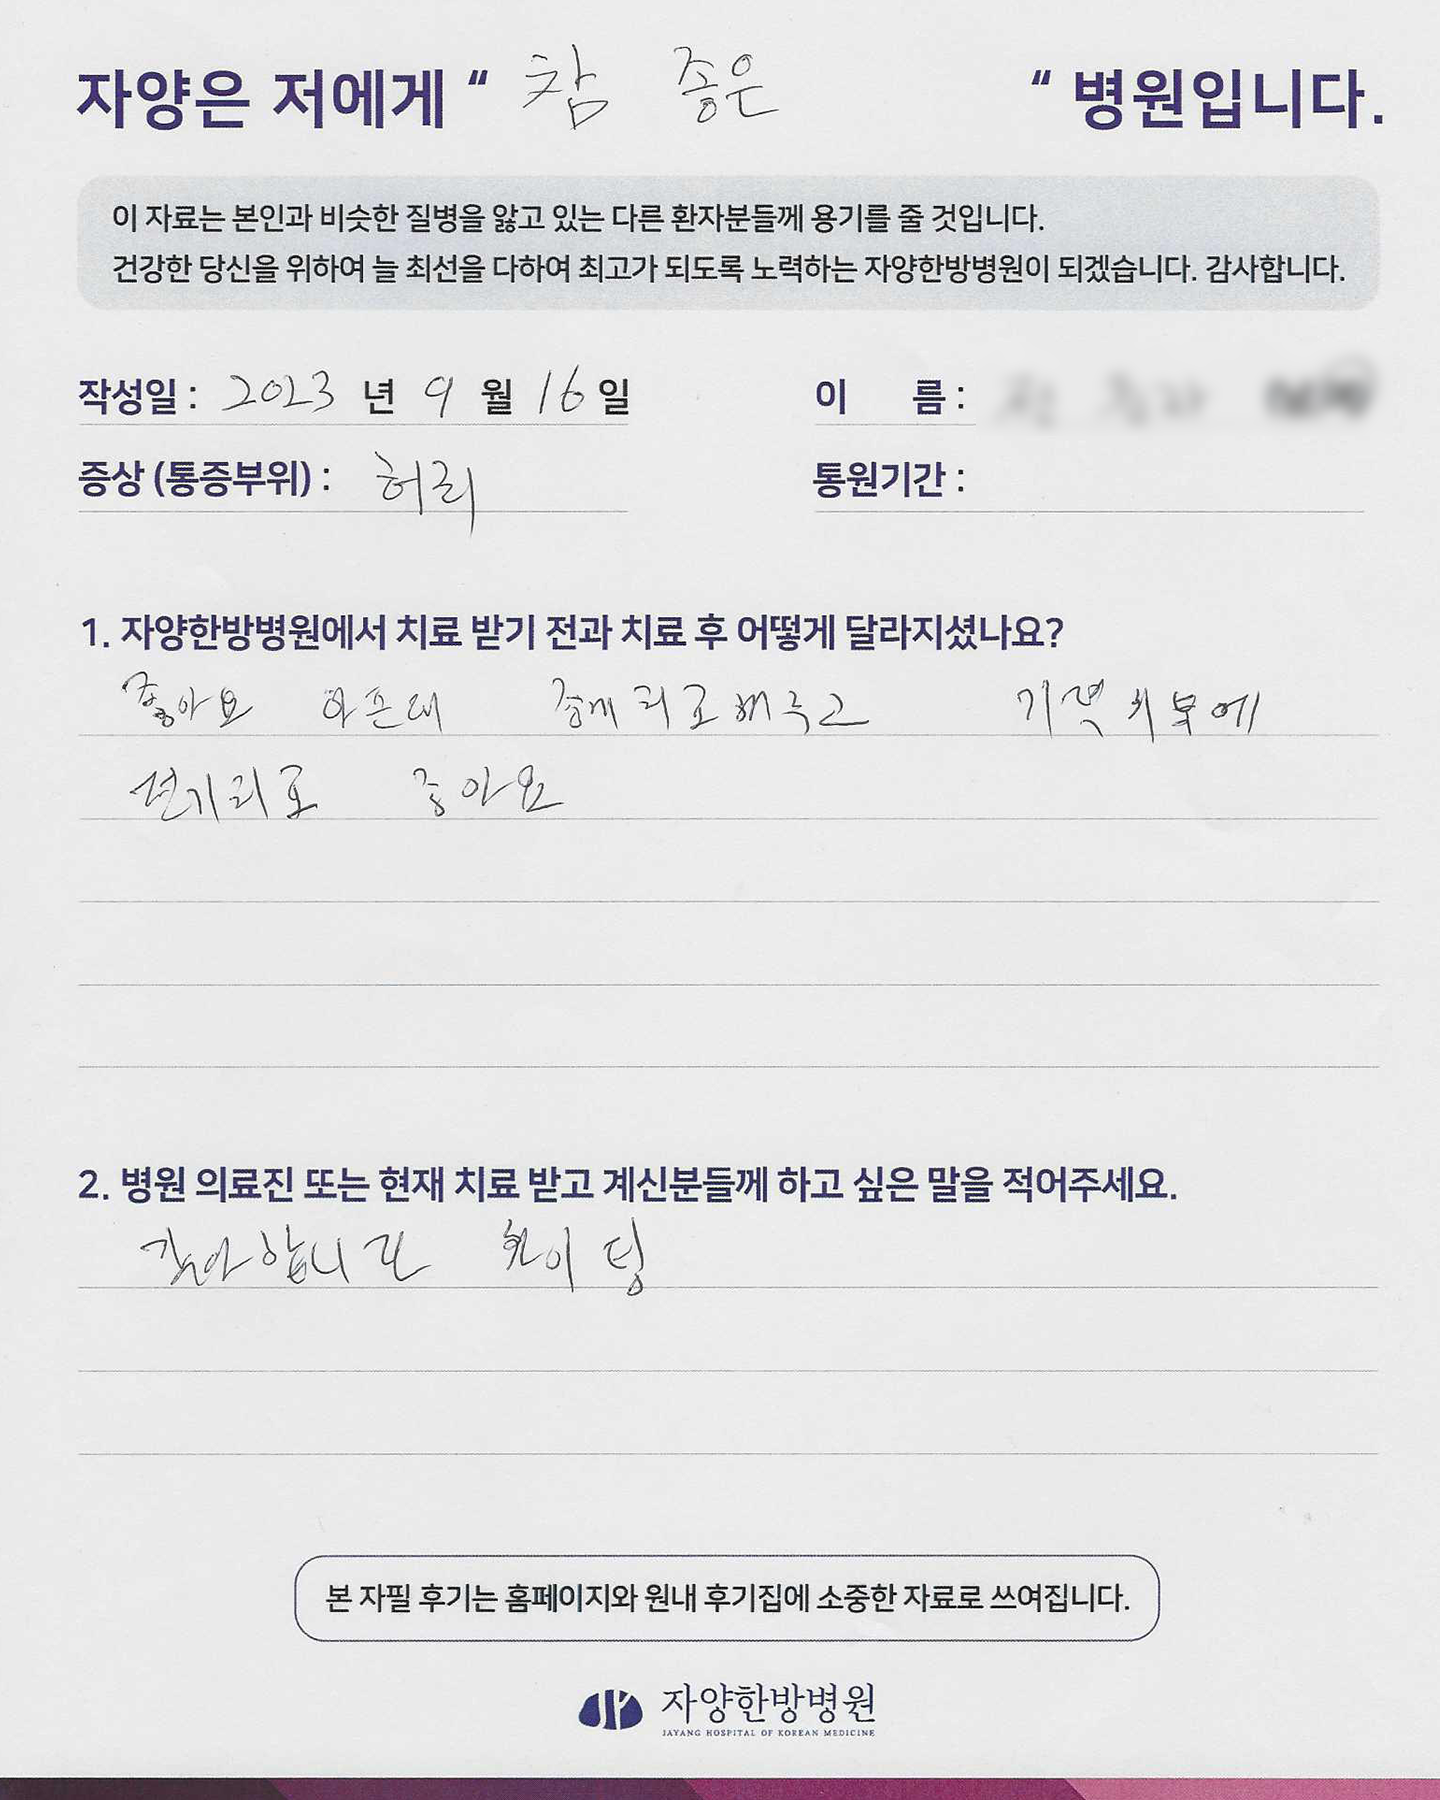 자양은 저에게 “ 참 좋은 “ 병원입니다.
이 자료는 본인과 비슷한 질병을 앓고 있는 다른 환자분들께 용기를 줄 것입니다.
건강한 당신을 위하여 늘 최선을 다하여 최고가 되도록 노력하는 자양한방병원이 되겠습니다. 감사합니다.
작성일 : 2023 년 9 월 16 일 이 름 :
증상 (통증부위) : 허리 통원기간 :
1. 자양한방병원에서 치료 받기 전과 치료 후 어떻게 달라지셨나요?
좋아요 아픈데
좋아요
2. 병원 의료진 또는 현재 치료 받고 계신분들께 하고 싶은 말을 적어주세요.
본 자필 후기는 홈페이지와 원내 후기집에 소중한 자료로 쓰여집니다.
자양한방병원
JAYANG HOSPITAL OF KOREAN MEDICINE